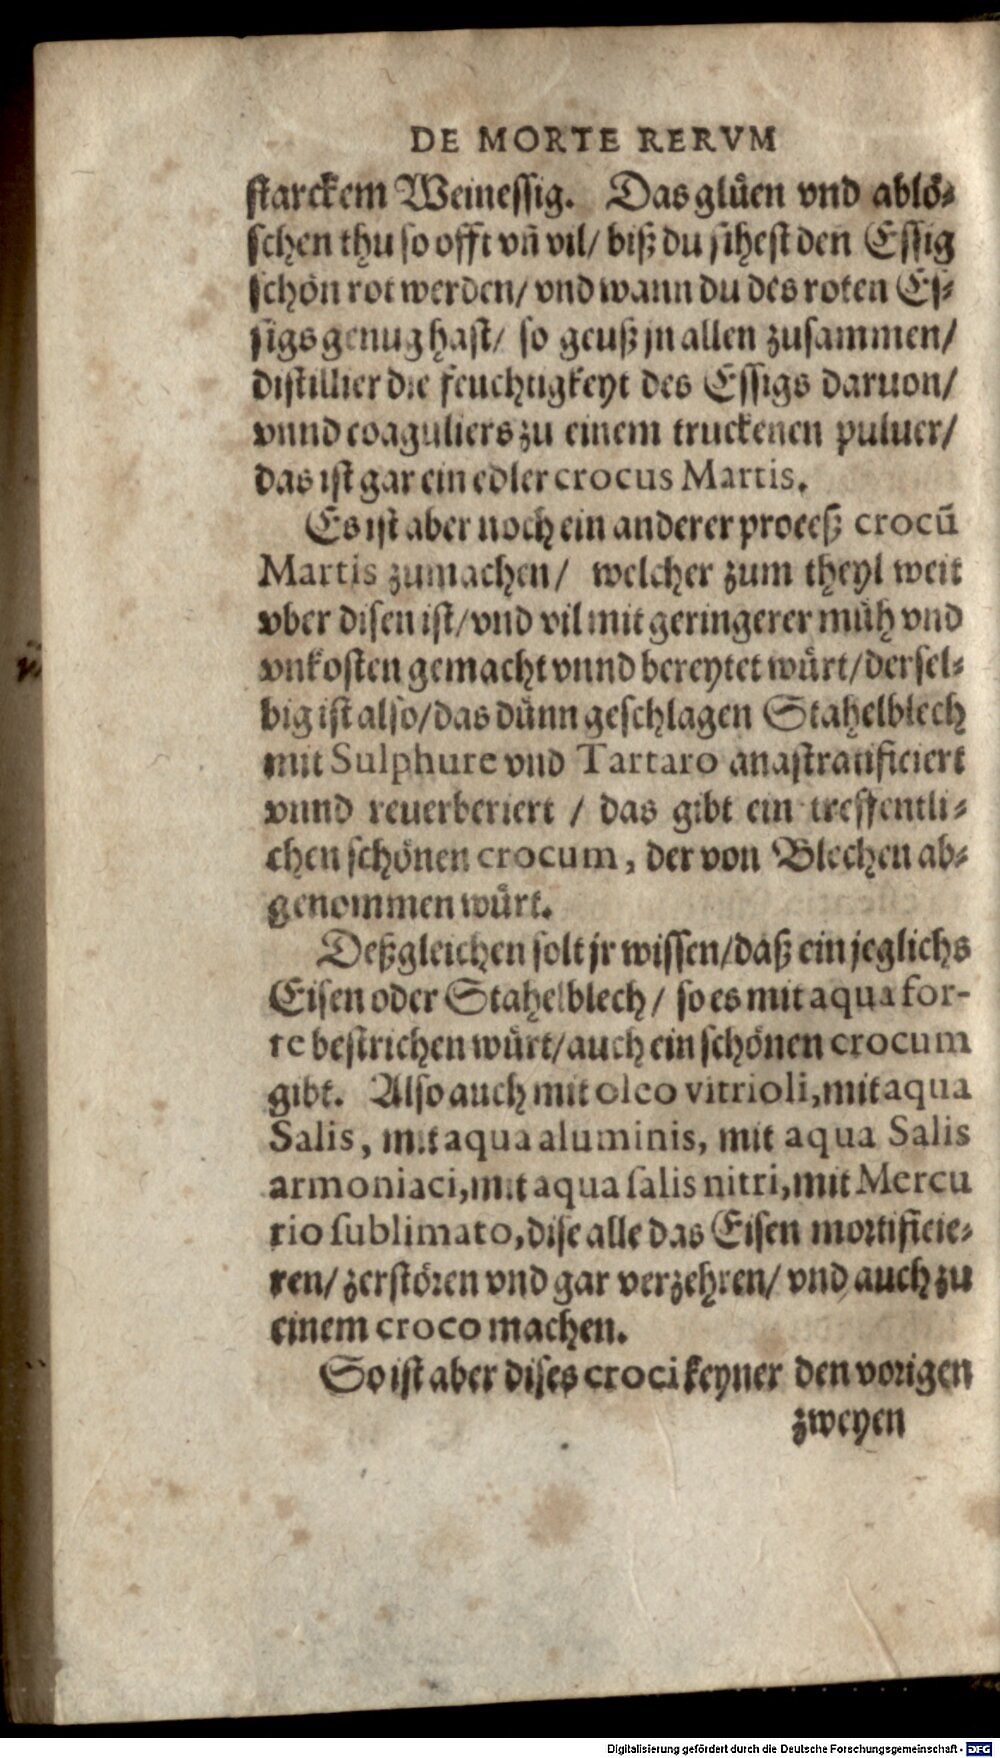 DE MORTE RERVM
starckem Weinessig. Das glüen vnd ablö-
schen thu so offt vñ vil/ biß du sihest den Essig
schön rot werden/ vnd wann du des roten Es-
sigs genug hast/ so geuß jn allen zusammen/
distillier die feuchtigkeyt des Essigs daruon/
vnnd coaguliers zu einem truckenen puluer/
das ist gar ein edler crocus Martis.
Es ist aber noch ein anderer proceß crocũ
Martis zumachen/ welcher zum theyl weit
vber disen ist/ vnd vil mit geringerer müh vnd
vnkosten gemacht vnnd bereytet würt/ dersel-
big ist also/ das dünn geschlagen Stahelblech
mit Sulphure vnd Tartaro anastratificiert
vnnd reuerberiert / das gibt ein treffentli-
chen schönen crocum, der von Blechen ab-
genommen würt.
Deßgleichen solt jr wissen/ daß ein jeglichs
Eisen oder Stahelblech/ so es mit aqua for-
te bestrichen würt/ auch ein schönen crocum
gibt. Also auch mit oleo vitrioli, mit aqua
Salis, mit aqua aluminis, mit aqua Salis
armoniaci, mit aqua salis nitri, mit Mercu
rio sublimato, dise alle das Eisen mortificie-
ren/ zerstören vnd gar verzehren/ vnd auch zu
einem croco machen.
So ist aber dises croci keyner den vorigen
zweyen
Digitalisierung gefördert durch die Deutsche Forschungsgemeinschaft - DFG